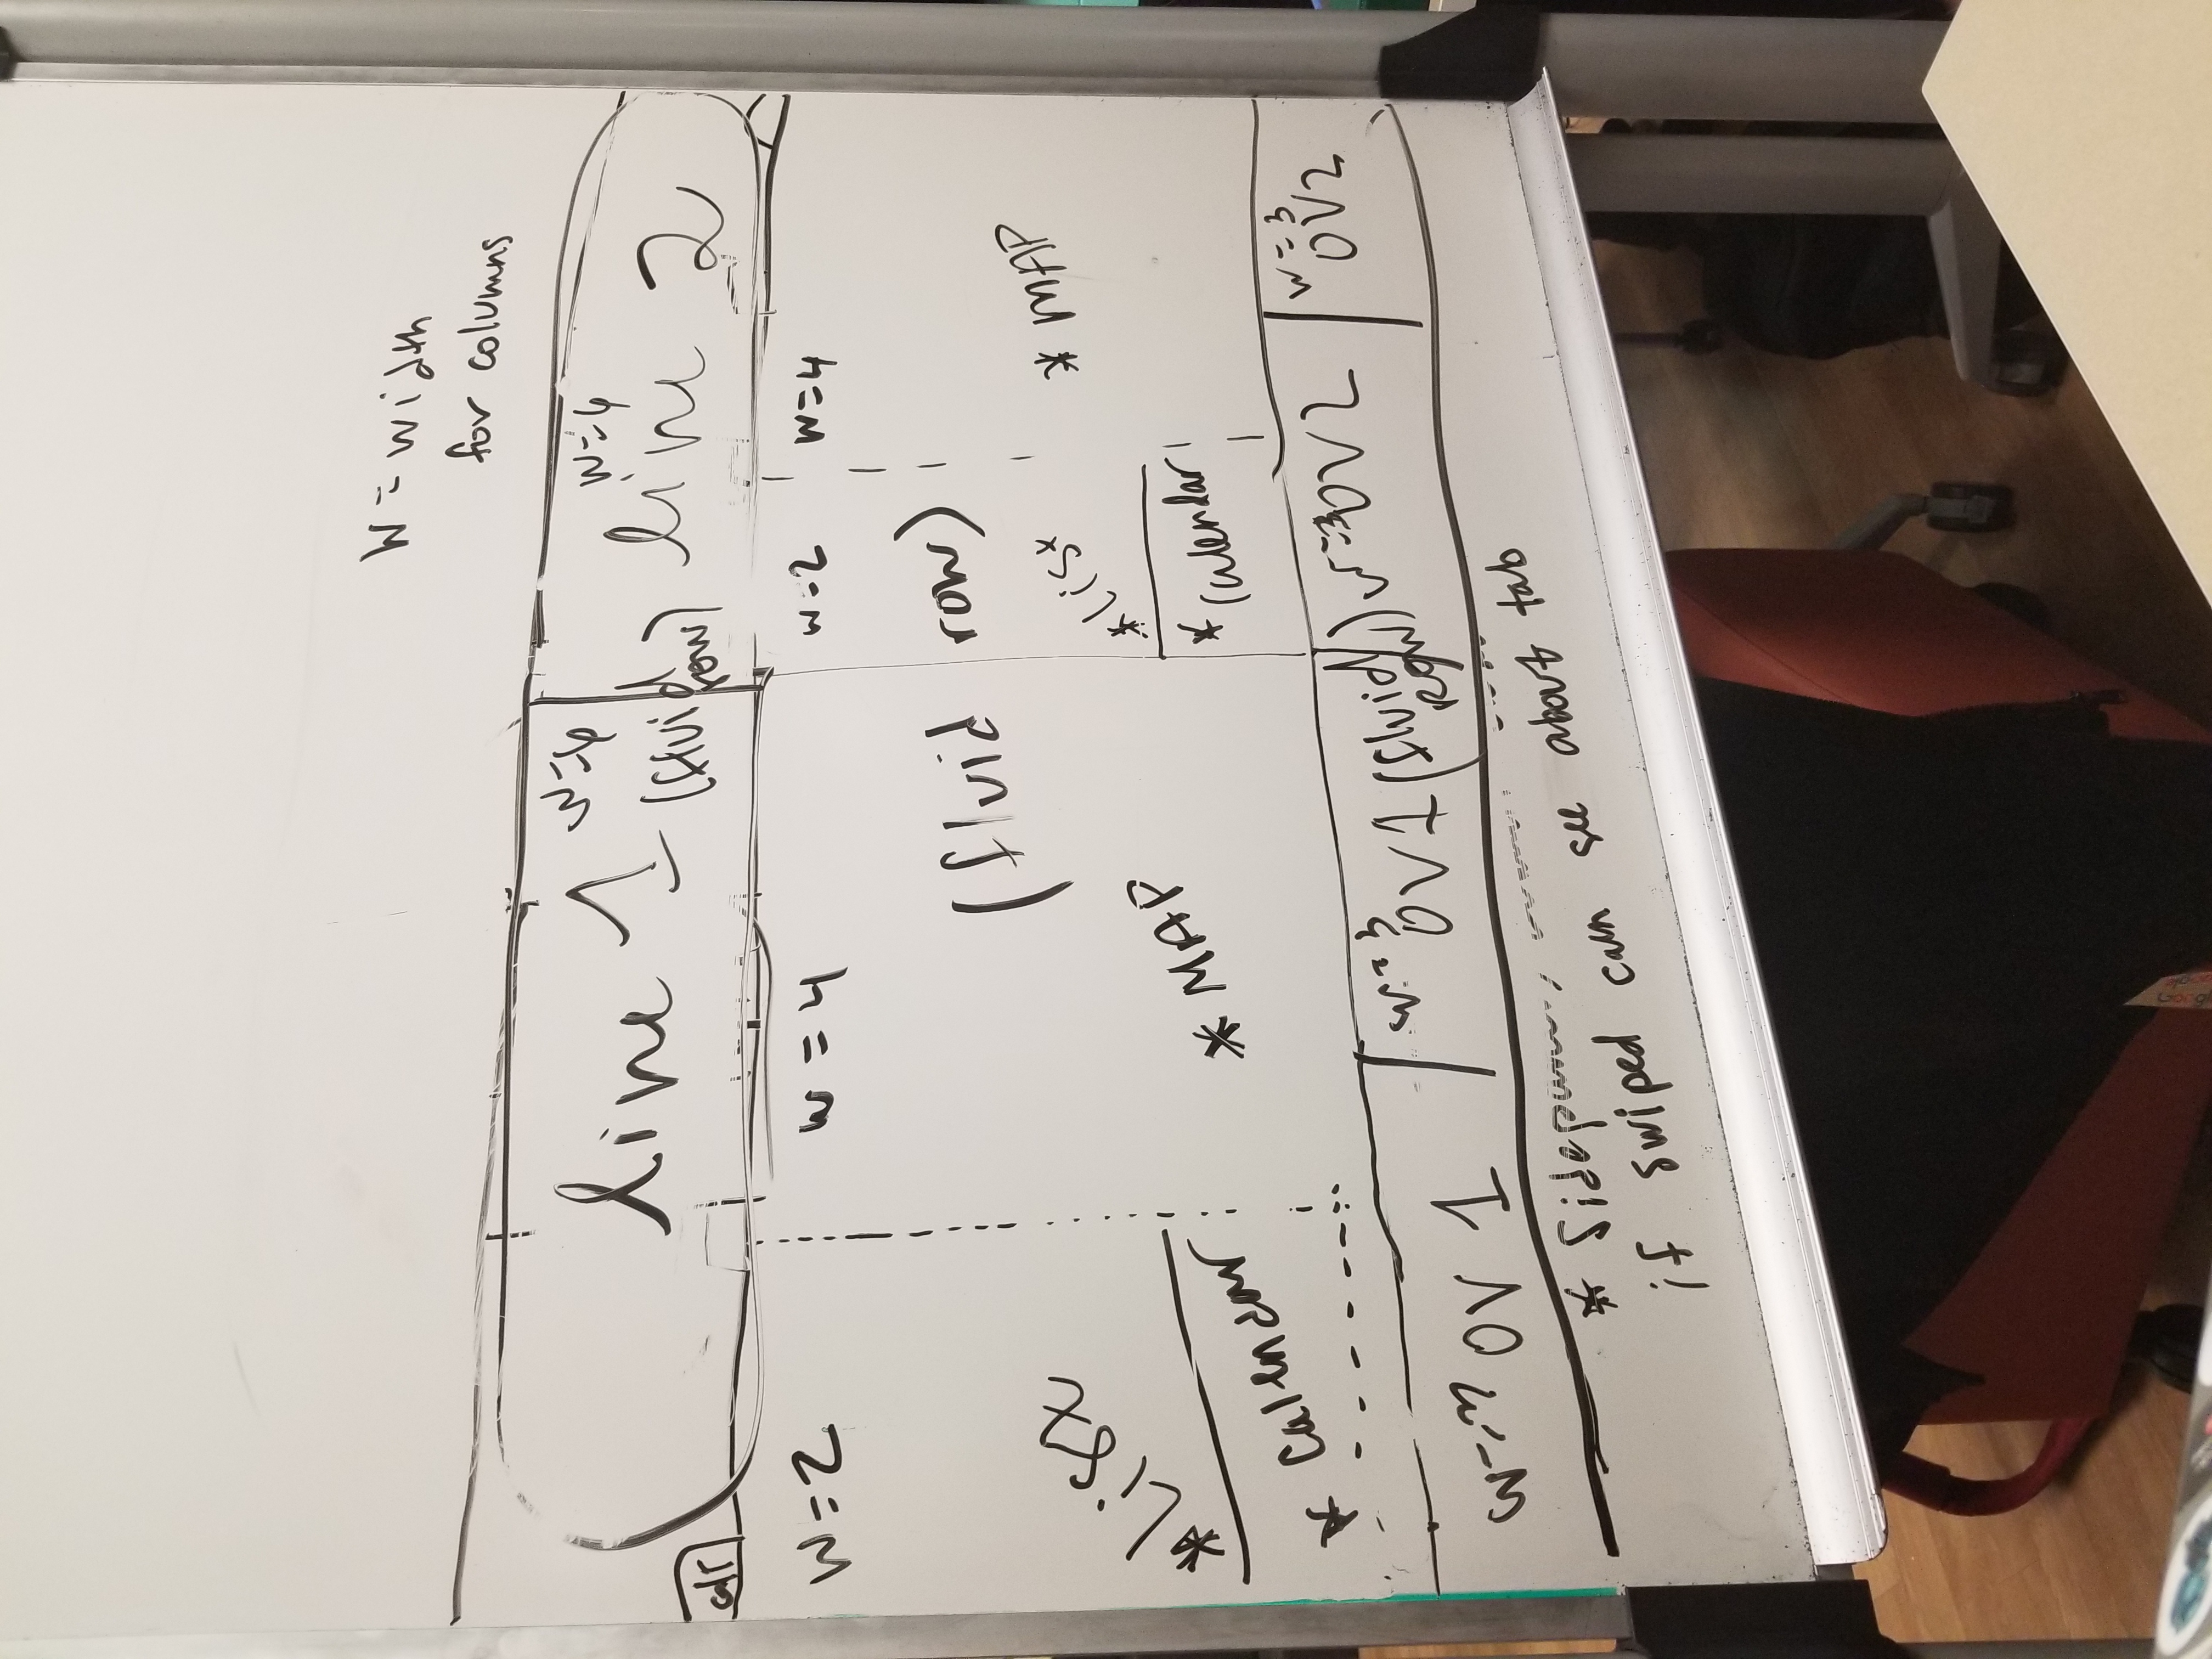 W = width
for columns
w=6
w=6
line 1
(fluid
row)
line 2
w=2
w=4
w=2
w=4
(fluid row)
* List
* MAP
* List
* MAP
* Calendar
* Calendar
w=3 OV 1
w=3
OV1
(fluid
row)
w=3 OV2
w=3
OV2
* Sidepanel
if swiped can see about tab